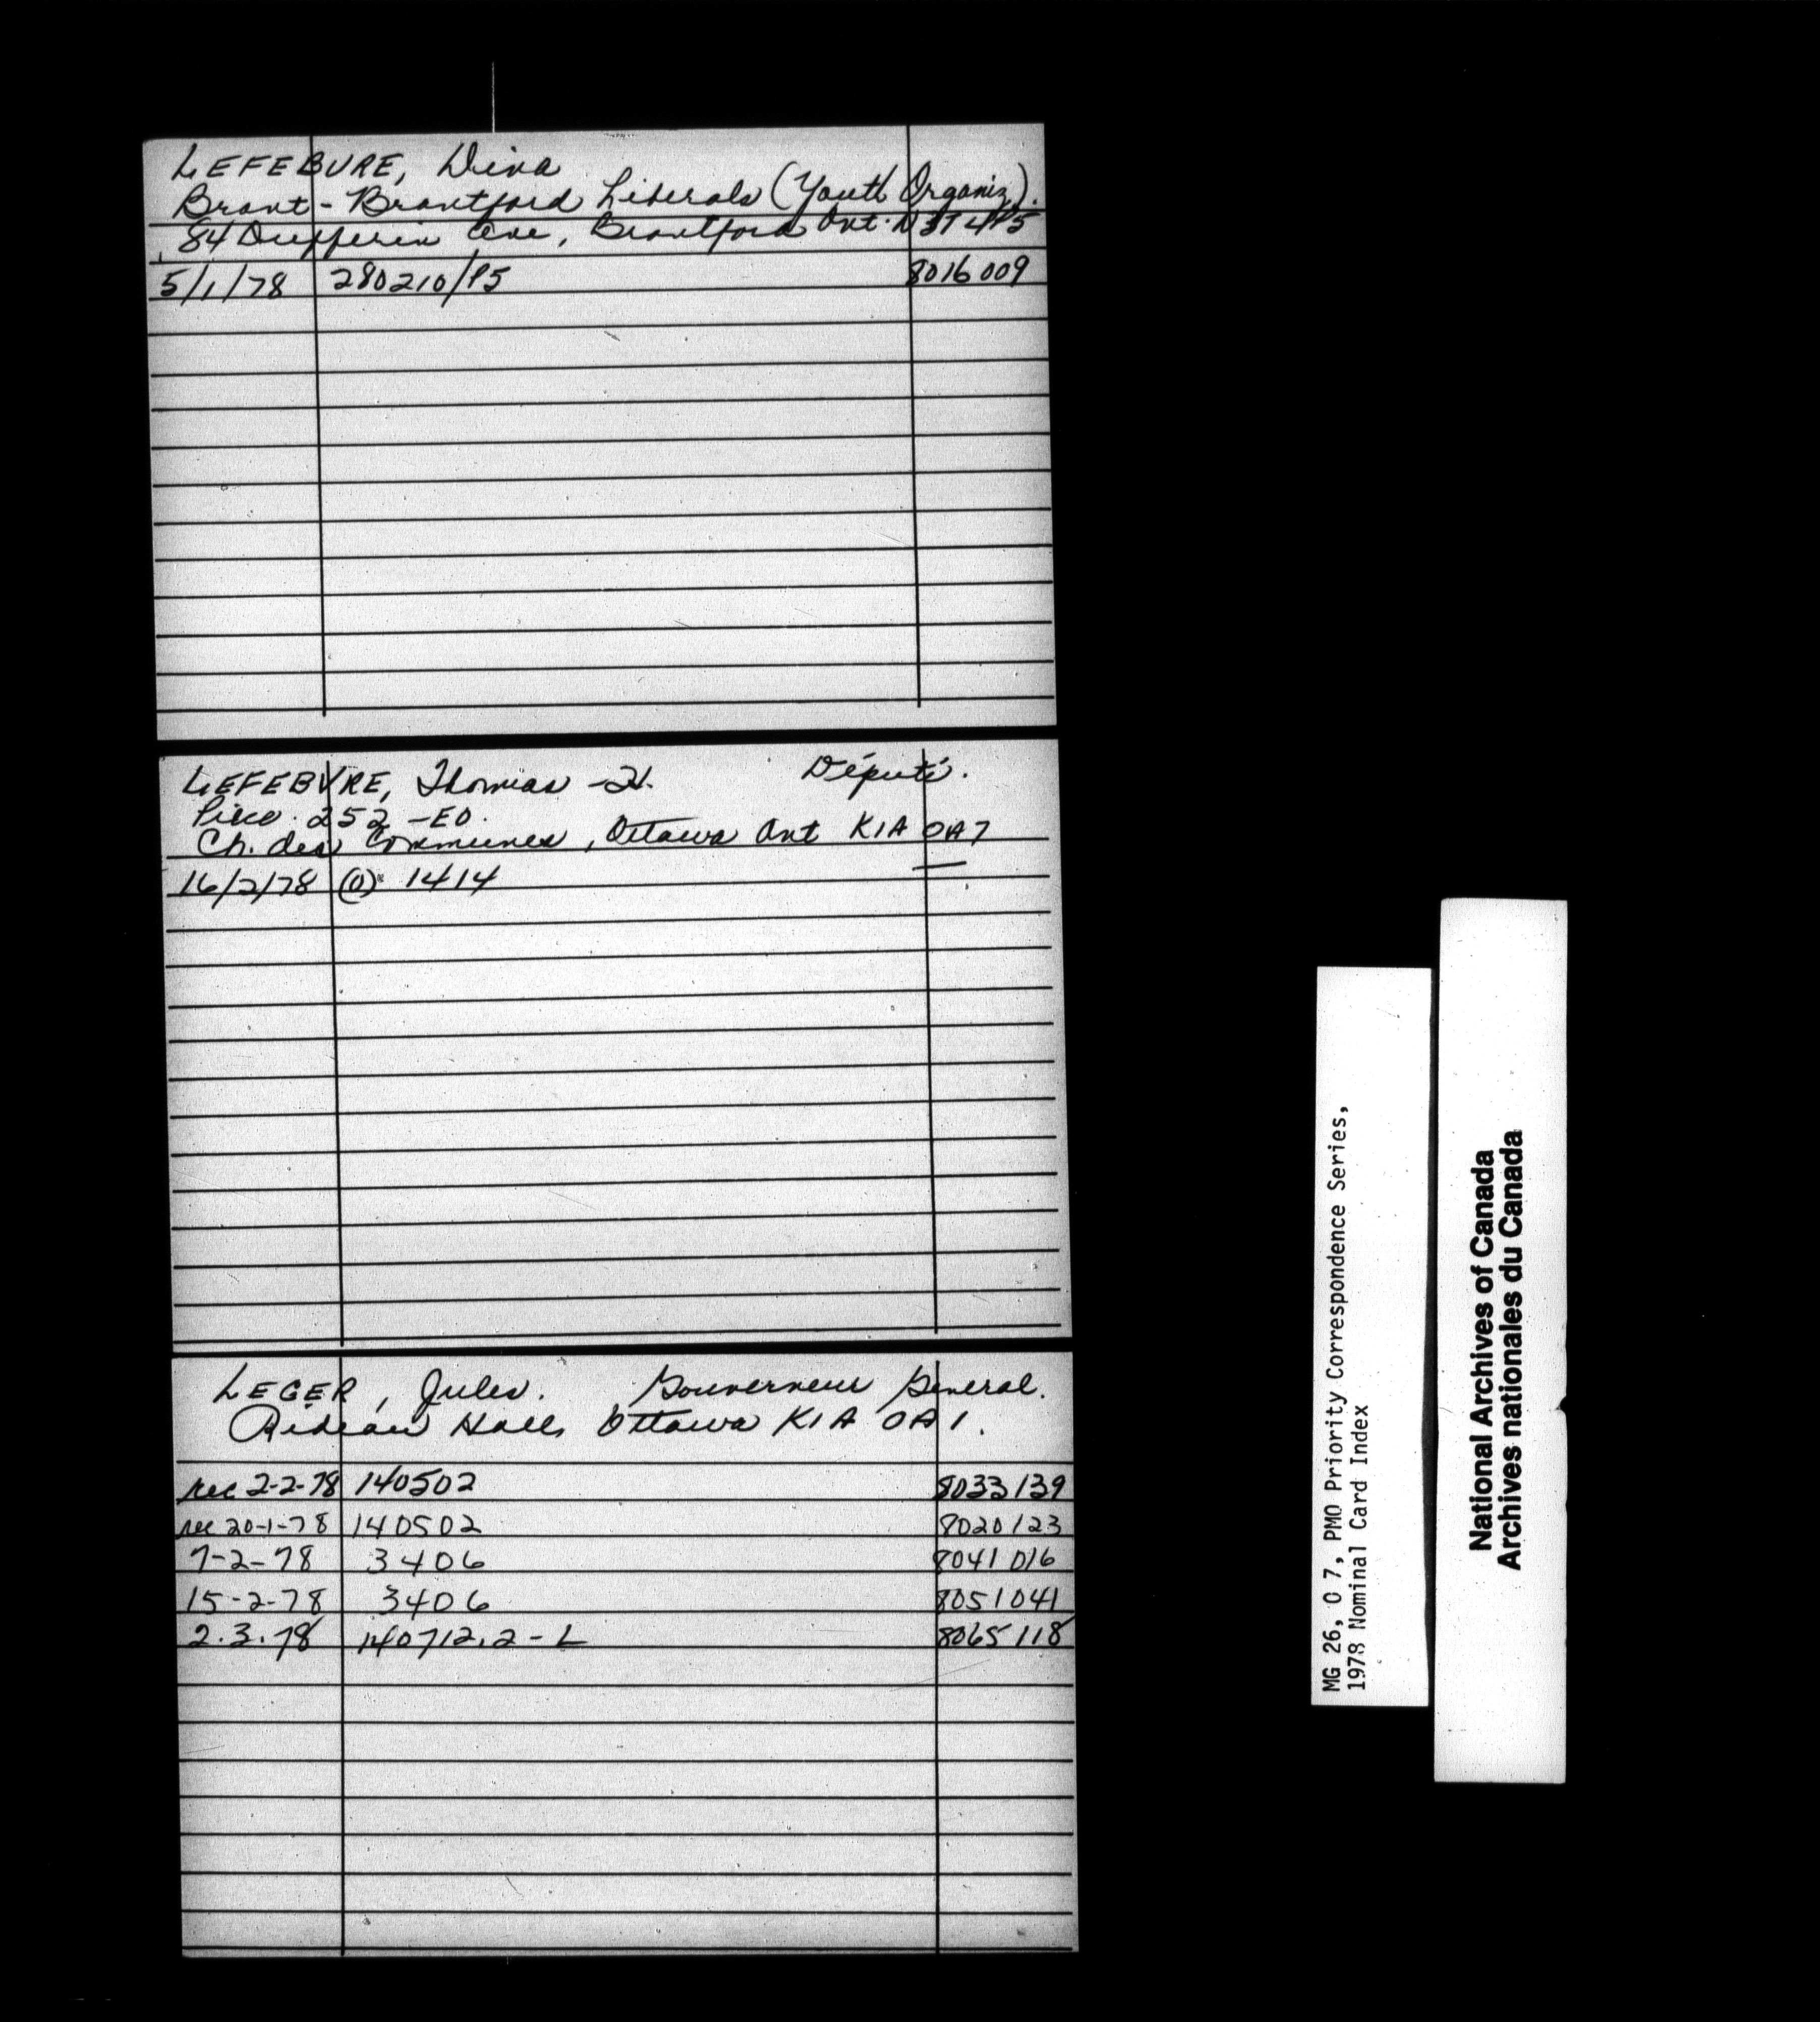 LEFEBVRE, Dina
Brant - Brantford Liberals (Youth Organiz).
84 Dufferin Ave, Brantford Ont. N3T 4P5
5/1/78 280210/P5 8016009
LEFEBVRE, Thomas -H. Député.
Pièce. 252 -ED.
Ch. des Communes, Ottawa Ont K1A 0A7
16/2/78 (O) 1414 —
LEGER, Jules. Gouverneur General.
Rideau Hall, Ottawa K1A 0A1.
rec 2-2-78 140502 8033139
rec 20-1-78 140502 8020123
7-2-78 3406 8041016
15-2-78 3406 8051041
2.3.78 140712.2-L 8065118
MG 26, O 7, PMO Priority Correspondence Series,
1978 Nominal Card Index
National Archives of Canada
Archives nationales du Canada